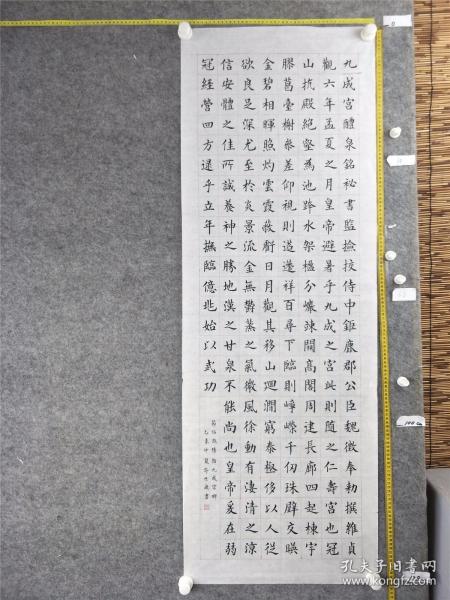 九成宮醴泉銘祕書監撿挍侍中鉅鹿郡公臣魏徵奉勑撰維貞
觀六年孟夏之月皇帝避暑乎九成之宮此則隨之仁壽宮也冠
山抗殿絕壑為池跨水架楹分巖竦闕高閣周建長廊四起棟宇
膠葛臺榭參差仰視則迢遰祥百尋下臨則崢嶸千仞珠壁交暎
金碧相暉照灼雲霞蔽虧日月觀其移山迴澗窮泰極侈以人從
欲良足深尤至於炎景流金無鬱蒸之氣微風徐動有淒清之涼
信安體之佳所誠養神之勝地漢之甘泉不能尚也皇帝爰在弱
冠經營四方逮乎立年撫臨億兆始以武功
臨歐陽詢九成宮碑
乙未中夏 書
孔夫子旧书网